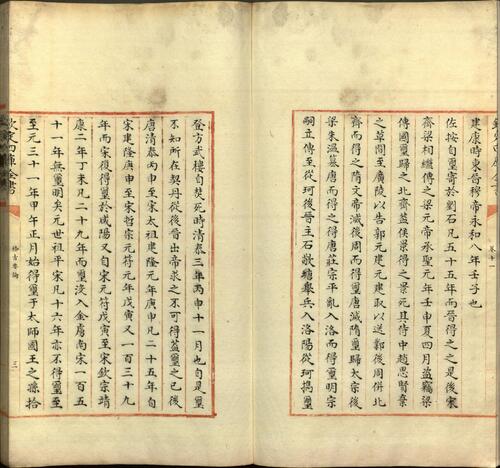 建康時東晉穆帝永和八年壬子也
佐按自璽寄於劉石凡五十五年而晉得之之是後宋
齊梁相繼傳之梁元帝承聖元年壬申夏四月盜竊梁
傳國璽歸之北齊蓋侯景得之景死其侍中趙思賢棄
之草間至廣陵以告郭元建元建取以送鄴後周併北
齊而得之隋文帝滅後周而得璽唐滅隋璽歸太宗後
梁朱溫簒唐而得之後唐莊宗平亂入洛而得璽明宗
嗣立傳至從珂後晉主石敬瑭舉兵入洛陽從珂攜璽
登方武樓自焚死時清泰三年丙申十一月也自是璽
不知所在契丹從後晉出帝求之不可得蓋璽之已後
唐清泰丙申至宋太祖建隆元年庚申凡二十五年自
宋建隆庚申至宋哲宗元符元年戊寅又一百三十九
年而宋復得璽於咸陽又自宋元符戊寅至宋欽宗靖
康二年丁未凡二十九年而璽沒入金虜南宋一百五
十一年無璽明矣元世祖平宋凡十六年亦不得璽至
至元三十一年甲午正月始得璽于太師國王之孫拾
欽定四庫全書
格古要論
三